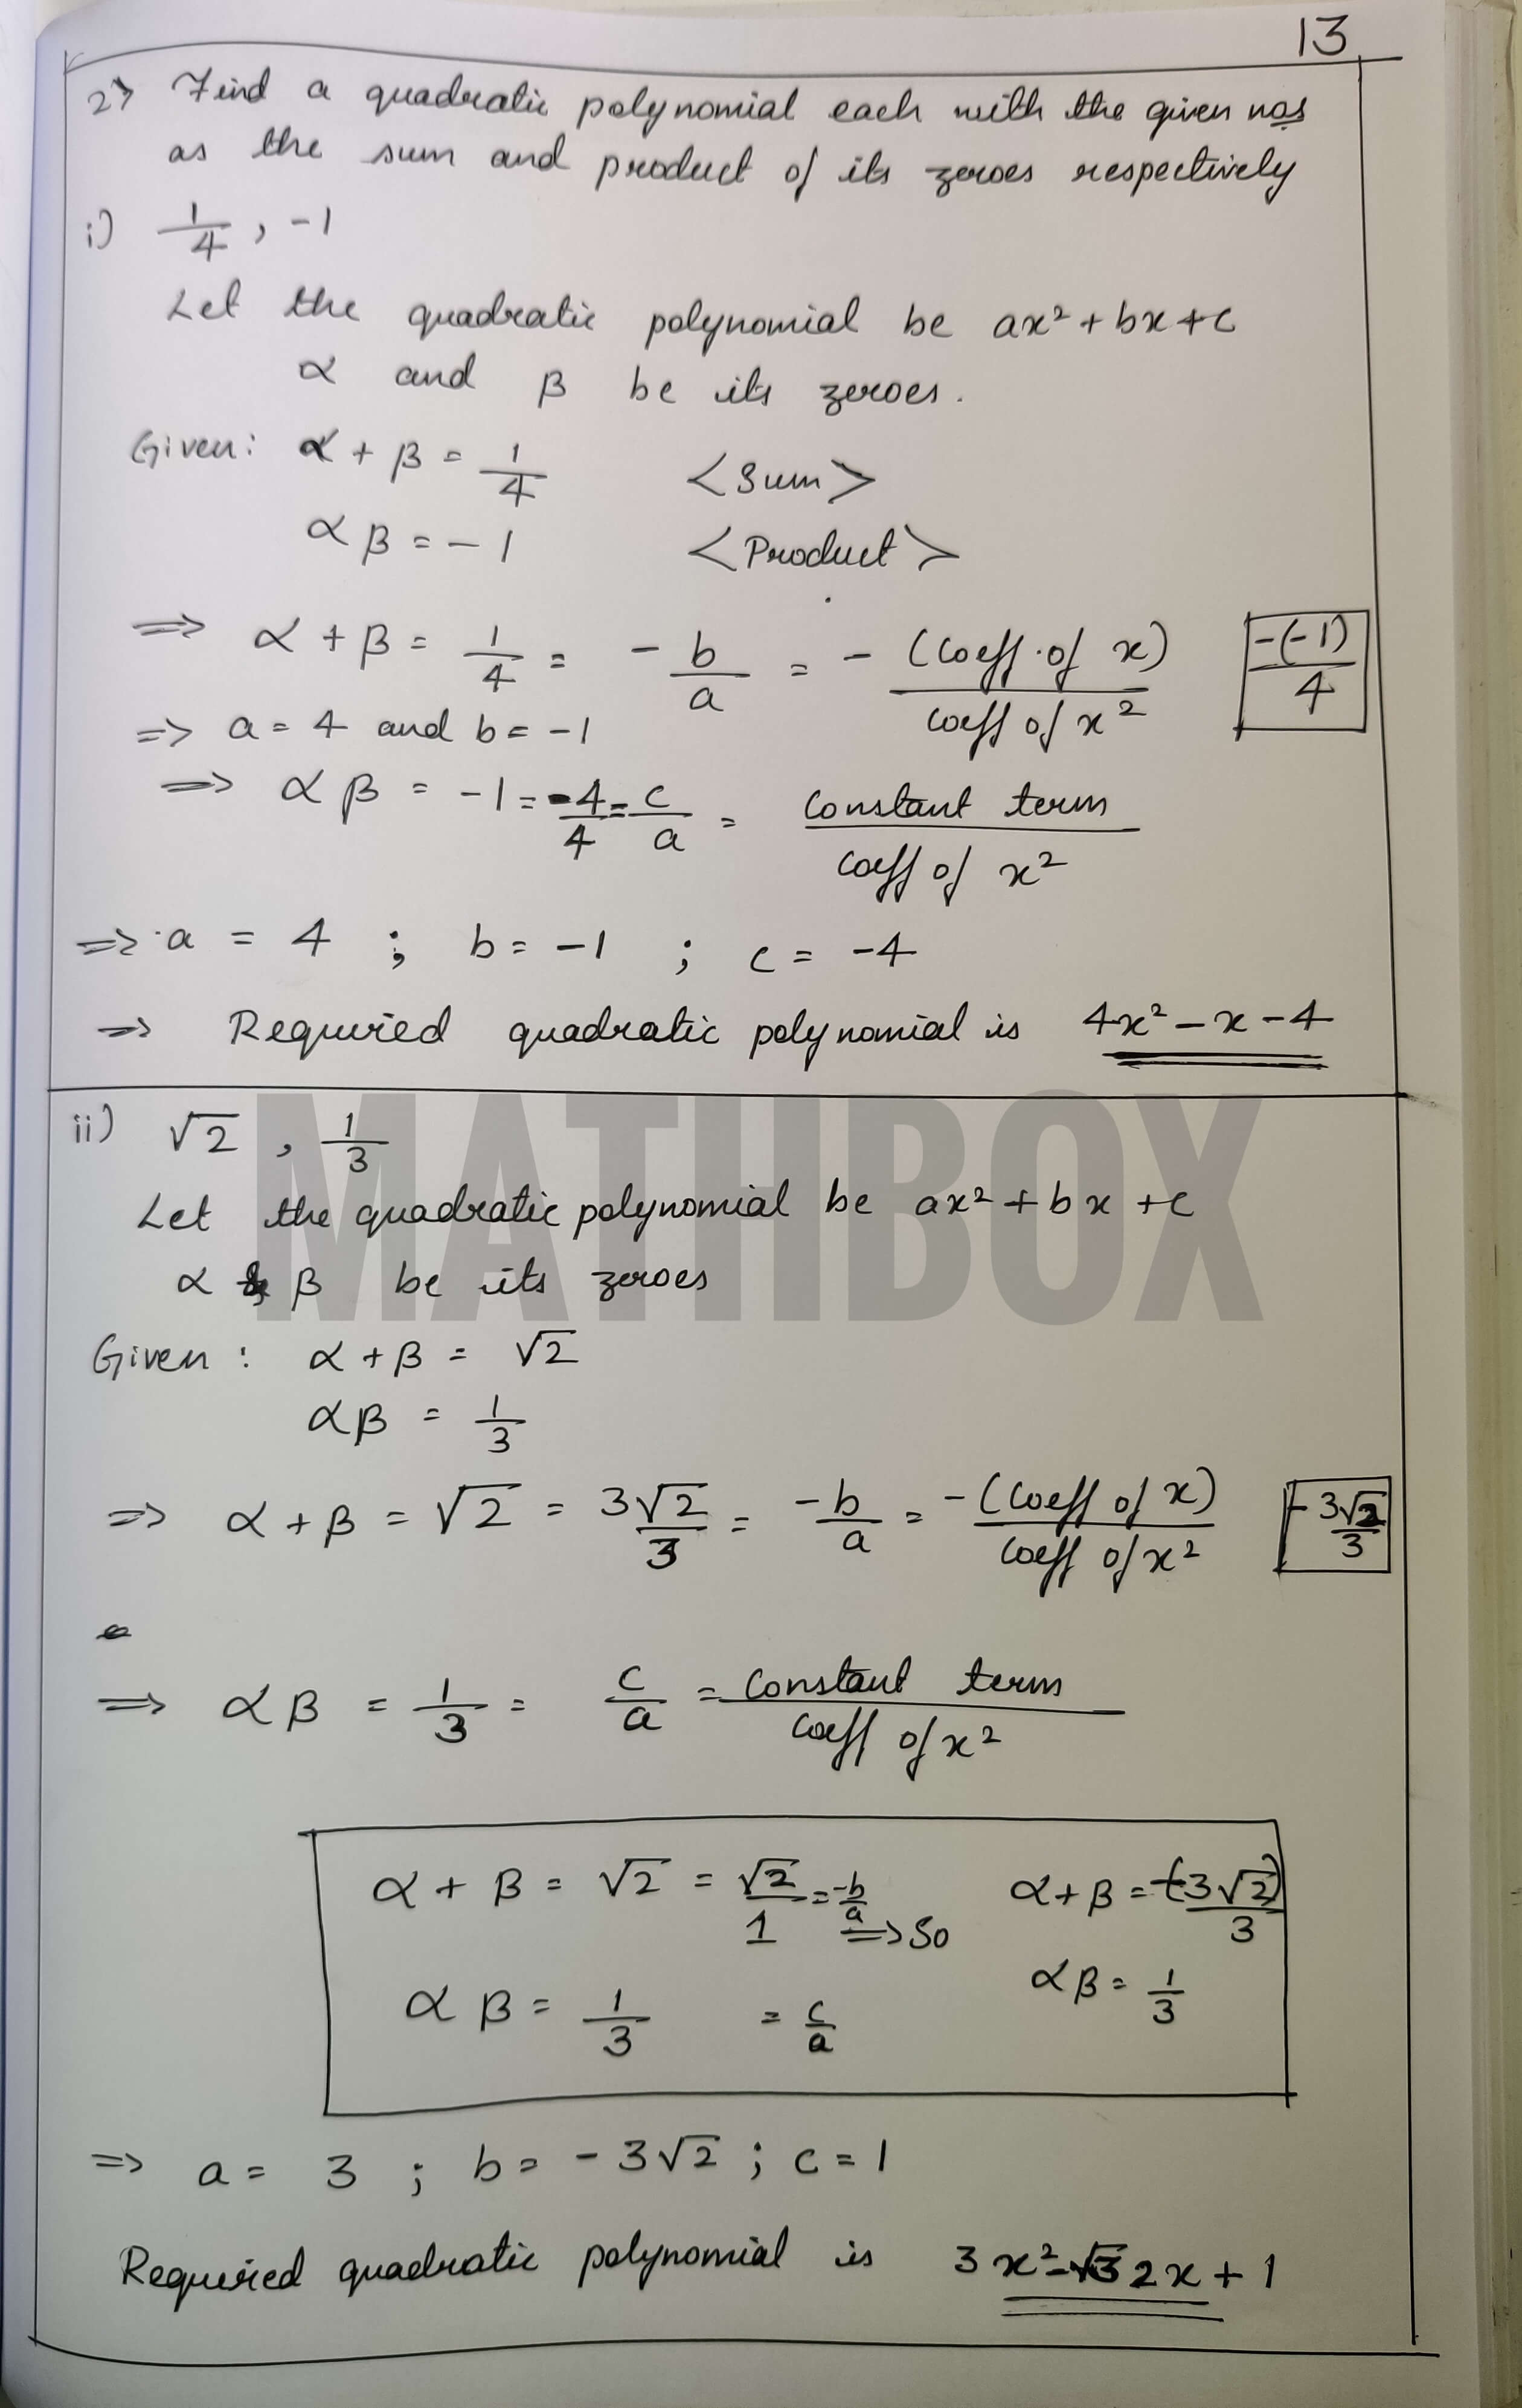 13
2) Find a quadratic polynomial each with the given nos
as the sum and product of its zeroes respectively
i) 1/4 , -1
Let the quadratic polynomial be ax² + bx + c
α and β be its zeroes.
Given: α + β = 1/4 <Sum>
αβ = -1 <Product>
⇒ α + β = 1/4 = -b/a = -(coeff. of x)/coeff of x² -(-1)/4
⇒ a = 4 and b = -1
⇒ αβ = -1 = -4/4 = c/a = constant term/coeff of x²
⇒ a = 4 ; b = -1 ; c = -4
⇒ Required quadratic polynomial is 4x² - x - 4
MATHBOX
ii) √2 , 1/3
Let the quadratic polynomial be ax² + bx + c
α & β be its zeroes
Given : α + β = √2
αβ = 1/3
⇒ α + β = √2 = 3√2/3 = -b/a = -(coeff of x)/coeff of x² -3√2/3
⇒ αβ = 1/3 = c/a = constant term/coeff of x²
α + β = √2 = √2/1 = -b/a ⇒ So α + β = -(-3√2)/3
αβ = 1/3 = c/a αβ = 1/3
⇒ a = 3 ; b = -3√2 ; c = 1
Required quadratic polynomial is 3x² - √32x + 1